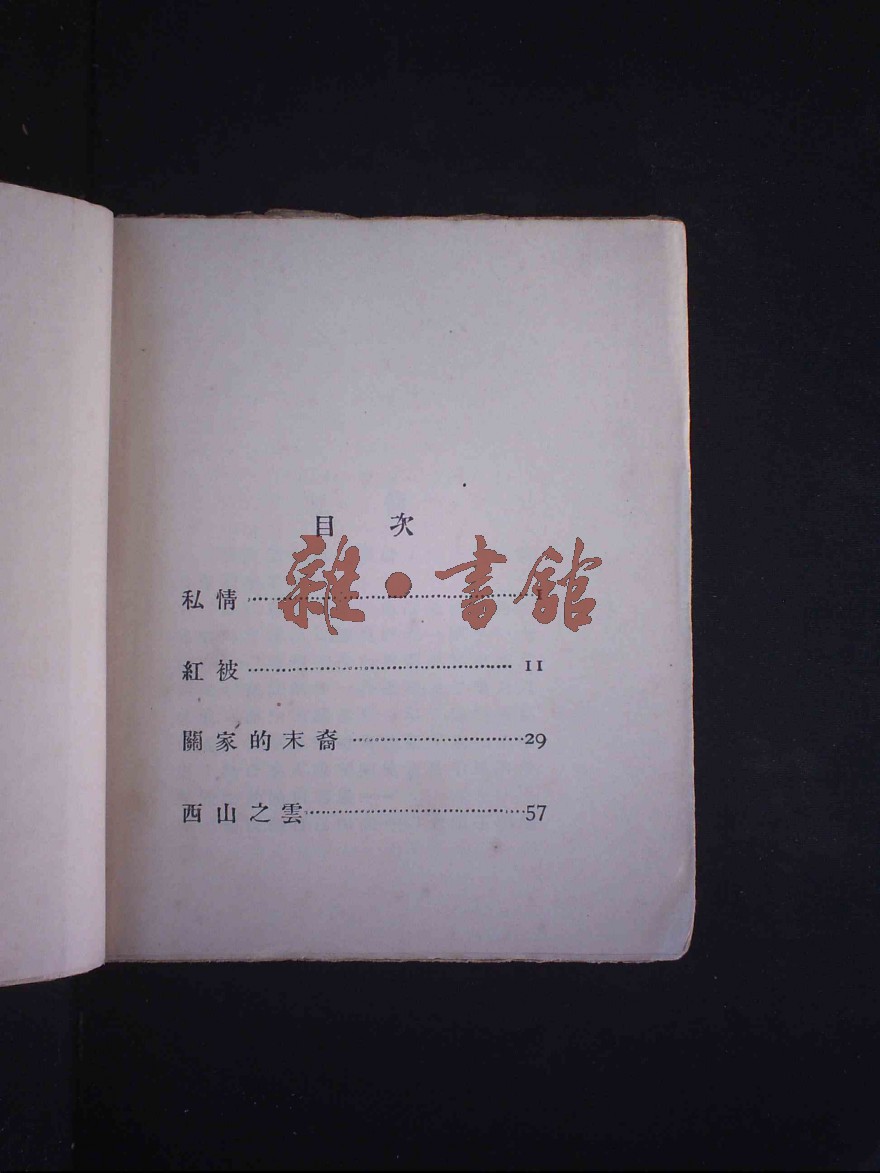 目 次
雜·書館
私情……………………………1
紅被…………………………… 11
關家的末裔 ……………………29
西山之雲………………………57